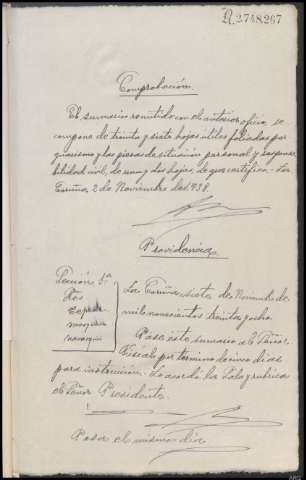 R.2.748.267
Comprobación.
El sumario remitido con el anterior oficio, se
compone de treinta y siete hojas útiles foliadas por
guarismo y las piezas de situación personal y responsa
bilidad civil, de una y dos hojas, de que certifico. La
Coruña, 2 de Noviembre de 1938.
Providencia,
Sección 1ª
La Coruña siete de Noviembre de
mil novecientos treinta y ocho.
Pase este sumario al Señor
Fiscal por término de cinco días
para instrucción. Lo acordó la Sala y rubrica
el Señor Presidente.
Pasa el mismo día